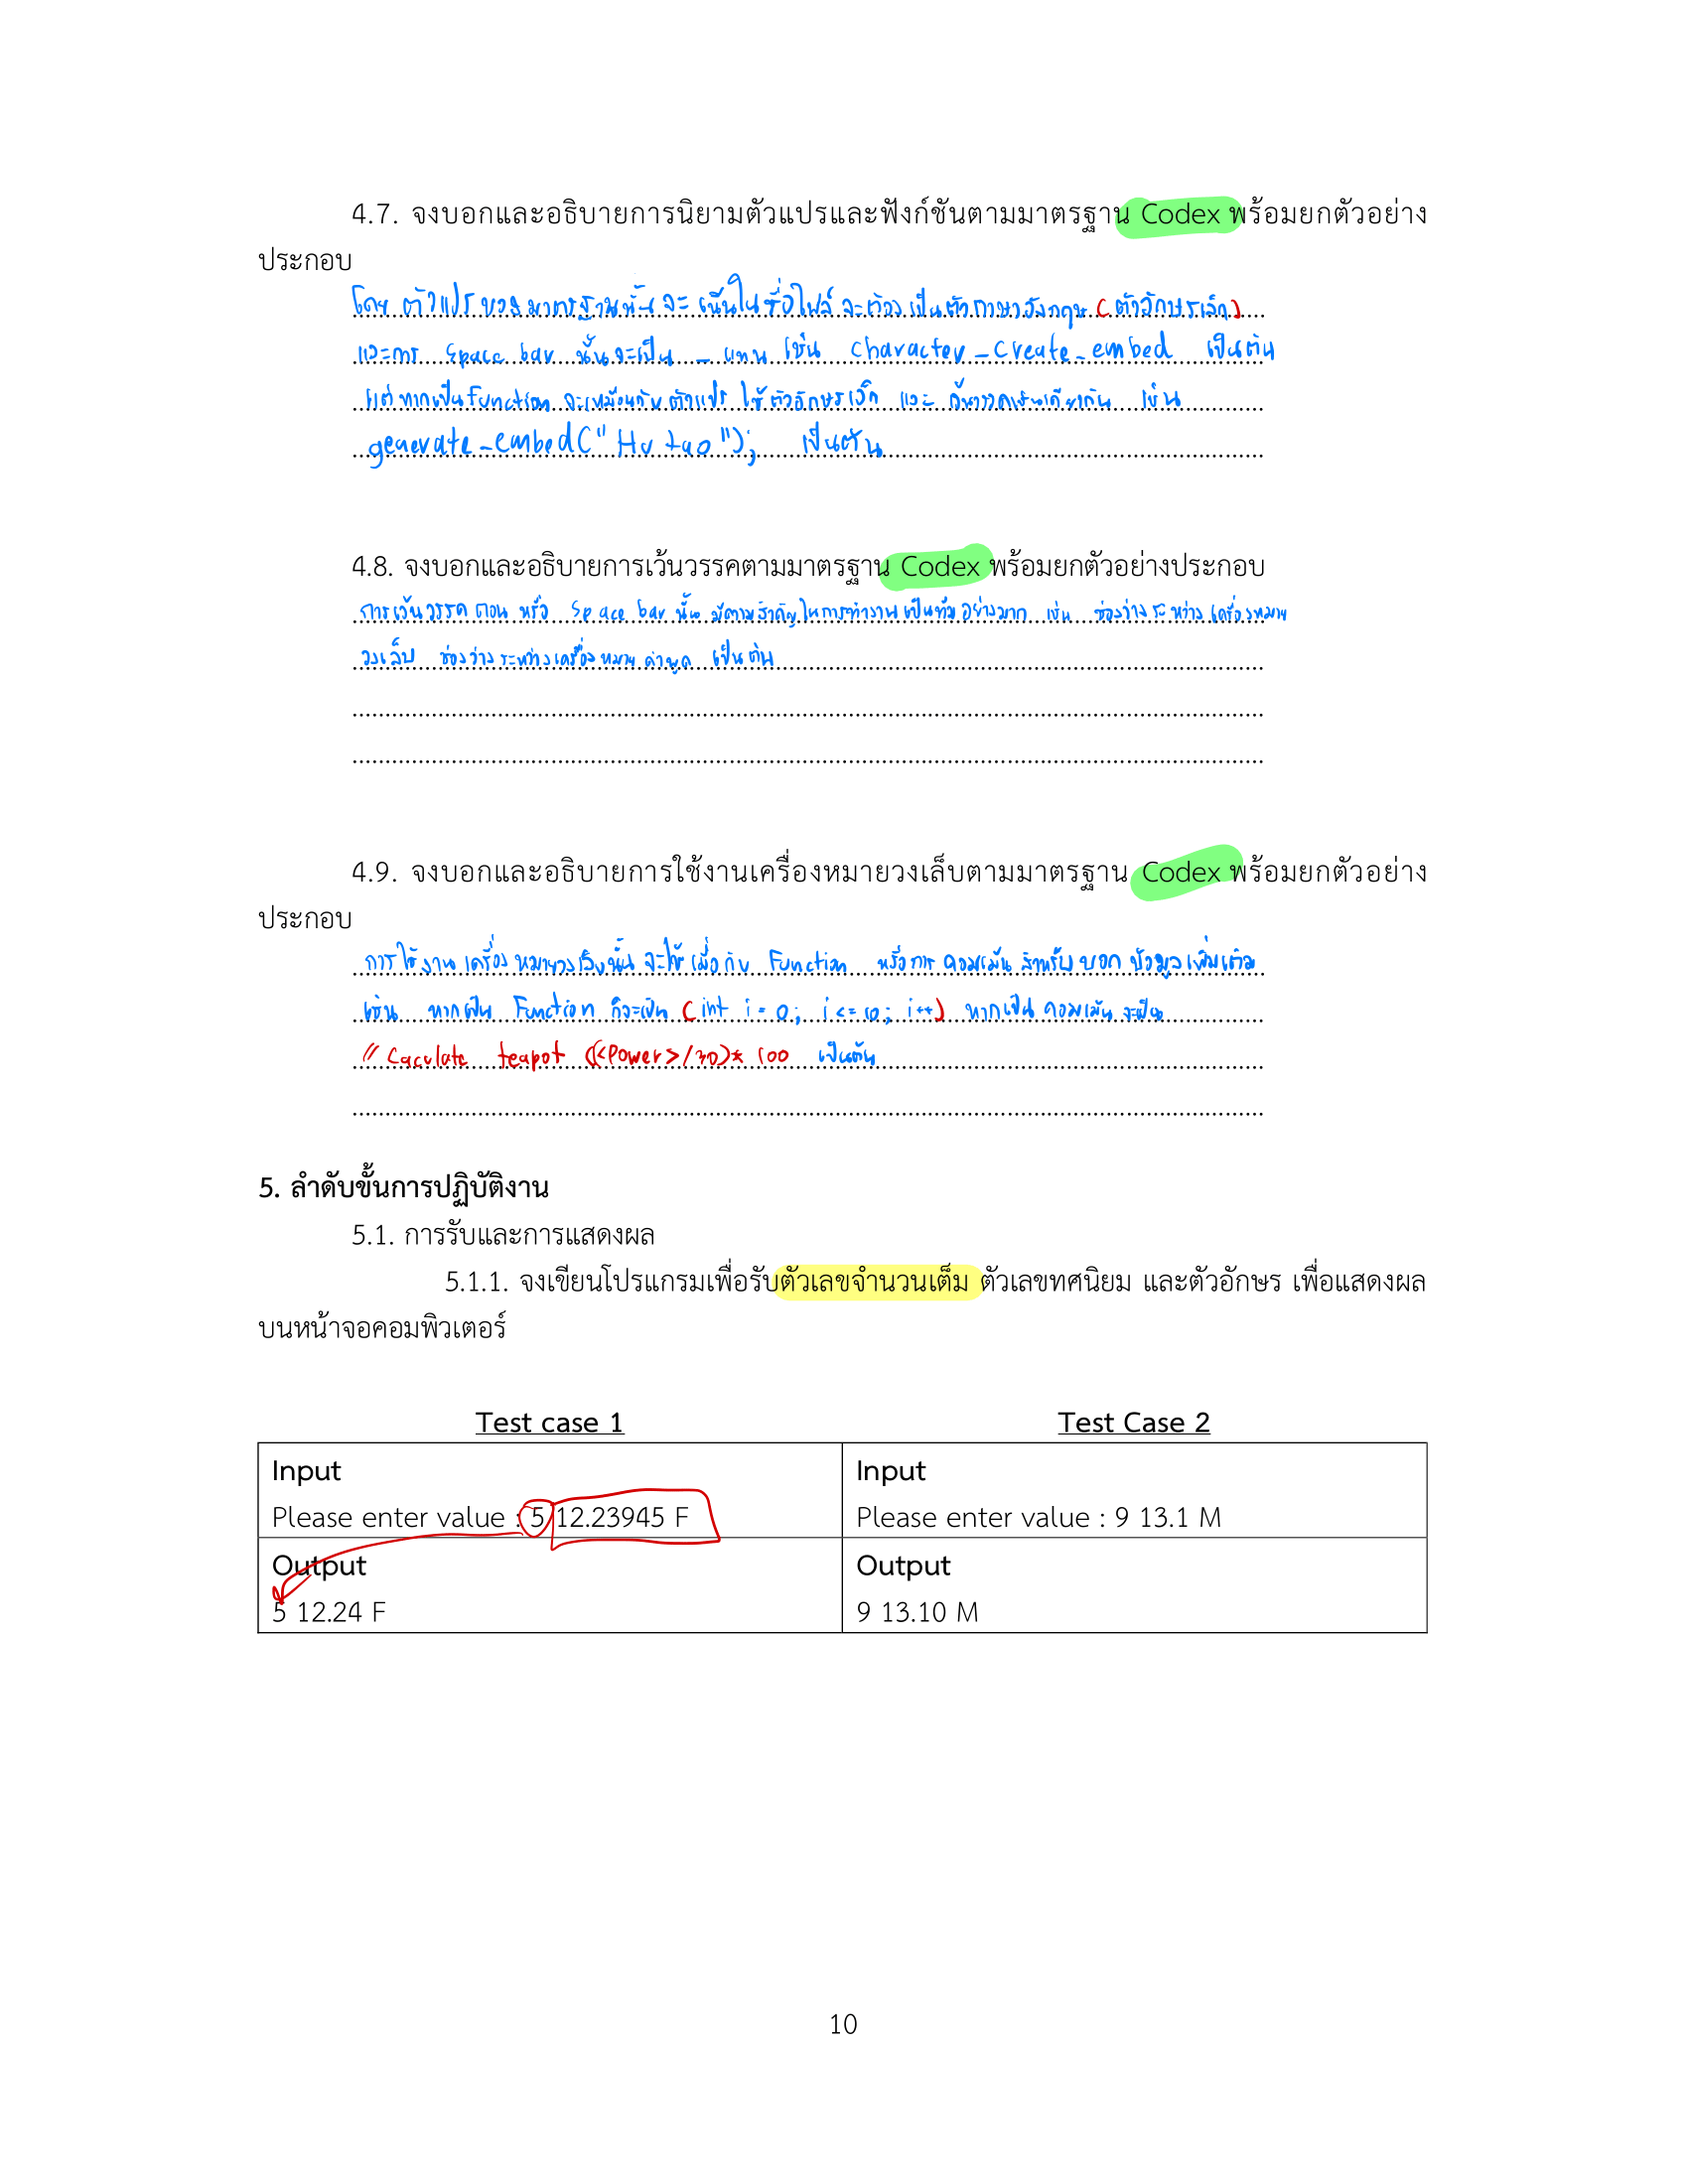 4.7. จงบอกและอธิบายการนิยามตัวแปรและฟังก์ชันตามมาตรฐาน Codex พร้อมยกตัวอย่าง
ประกอบ
โดย ตัวแปร ของ มาตรฐานนั้น จะ เน้นใน ชื่อไฟล์ จะต้อง เป็นตัวภาษาอังกฤษ (ตัวอักษรเล็ก)
และการ Space bar นั้นจะเป็น _ แทน เช่น Character_Create_embed เป็นต้น
แต่ หากเป็น function จะเหมือนกับ ตัวแปร ใช้ ตัวอักษรเล็ก และ เว้นวรรคเช่นเดียวกัน เช่น
generate_embed("Hu tao"); เป็นต้น
4.8. จงบอกและอธิบายการเว้นวรรคตามมาตรฐาน Codex พร้อมยกตัวอย่างประกอบ
การเว้นวรรค ตอน หรือ Space bar นั้น มีความสำคัญ ในการทำงาน เป็นทีม อย่างมาก เช่น ช่องว่าง ระหว่าง เครื่องหมาย
วงเล็บ ช่องว่าง ระหว่าง เครื่องหมาย คำพูด เป็นต้น
4.9. จงบอกและอธิบายการใช้งานเครื่องหมายวงเล็บตามมาตรฐาน Codex พร้อมยกตัวอย่าง
ประกอบ
การใช้งาน เครื่องหมายวงเล็บนั้น จะใช้ เมื่อ กับ Function หรือการ คอมเม้น สำหรับ บอก ข้อมูล เพิ่มเติม
เช่น หากเป็น Function ก็จะเป็น (int i = 0; i <= 10; i++) หากเป็น คอมเม้น จะเป็น
// Caculate teapot ((<Power>/30)* 100 เป็นต้น
5. ลำดับขั้นการปฏิบัติงาน
5.1. การรับและการแสดงผล
5.1.1. จงเขียนโปรแกรมเพื่อรับตัวเลขจำนวนเต็ม ตัวเลขทศนิยม และตัวอักษร เพื่อแสดงผล
บนหน้าจอคอมพิวเตอร์
Test case 1
Test Case 2
Input
Please enter value : 5 12.23945 F
Input
Please enter value : 9 13.1 M
Output
5 12.24 F
Output
9 13.10 M
10